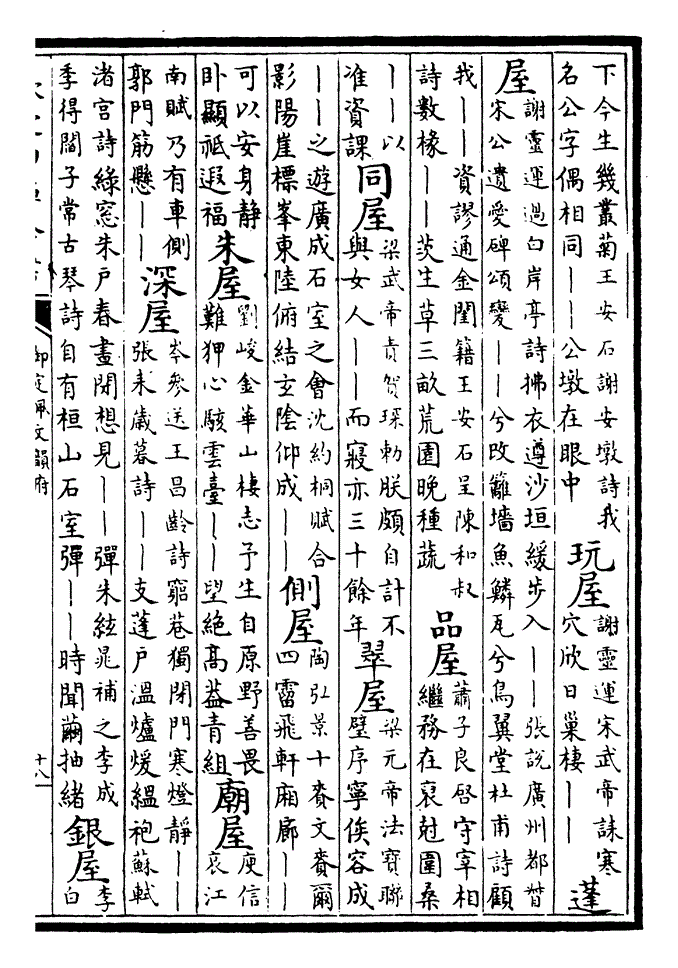 下今生幾叢菊王安石謝安墩詩我
名公字偶相同丨丨公墩在眼中
玩屋
謝靈運宋武帝誄寒
穴欣日巢棲丨丨
蓬
屋
謝靈運過白岸亭詩拂衣遵沙垣緩步入丨丨張說廣州都督
宋公遺愛碑頌變丨丨兮改籬墻魚鱗瓦兮鳥翼堂杜甫詩顧
我丨丨資謬通金閨籍王安石呈陳和叔
詩數椽丨丨茨生草三畝荒園晚種蔬
品屋
蕭子良啓守宰相
繼務在裒尅圍桑
丨丨以
准資課
同屋
梁武帝責賀琛勅朕頗自計不
與女人丨丨而寢亦三十餘年
翠屋
梁元帝法寶聯
璧序寧俟容成
丨丨之遊廣成石室之會沈約桐賦合
影陽崖標峯東陸俯結玄陰仰成丨丨
側屋
陶弘景十賚文賚爾
四霤飛軒廂廊丨丨
可以安身靜
卧顯祗遐福
朱屋
劉峻金華山棲志予生自原野善畏
難狎心駭雲臺丨丨望絶髙葢青組
廟屋
庾信
哀江
南賦乃有車側
郭門筋懸丨丨
深屋
岑參送王昌齡詩窮巷獨閉門寒燈靜丨丨
張耒歲暮詩丨丨支蓬戶溫爐煖縕袍蘇軾
渚宮詩綠窓朱戶春晝閉想見丨丨彈朱絃晁補之李成
季得閻子常古琴詩自有桓山石室彈丨丨時聞繭抽緒
銀屋
李
白
御定佩文韻府
十八